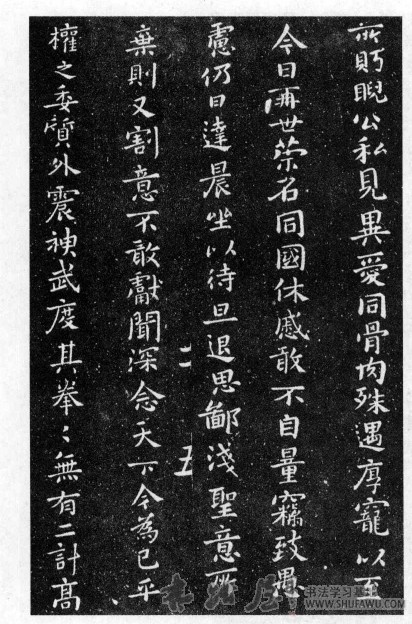 所貺睨公私見異愛同骨肉殊遇厚寵以至
今日再世榮名同國休慼敢不自量竊致愚
慮仍日達晨坐以待旦退思鄙淺聖意所
棄則又割意不敢獻聞深念天下今為已平
權之委質外震神武度其拳〻無有二計高
二 五
书法学习基地
WWW.SHUFAWU.COM